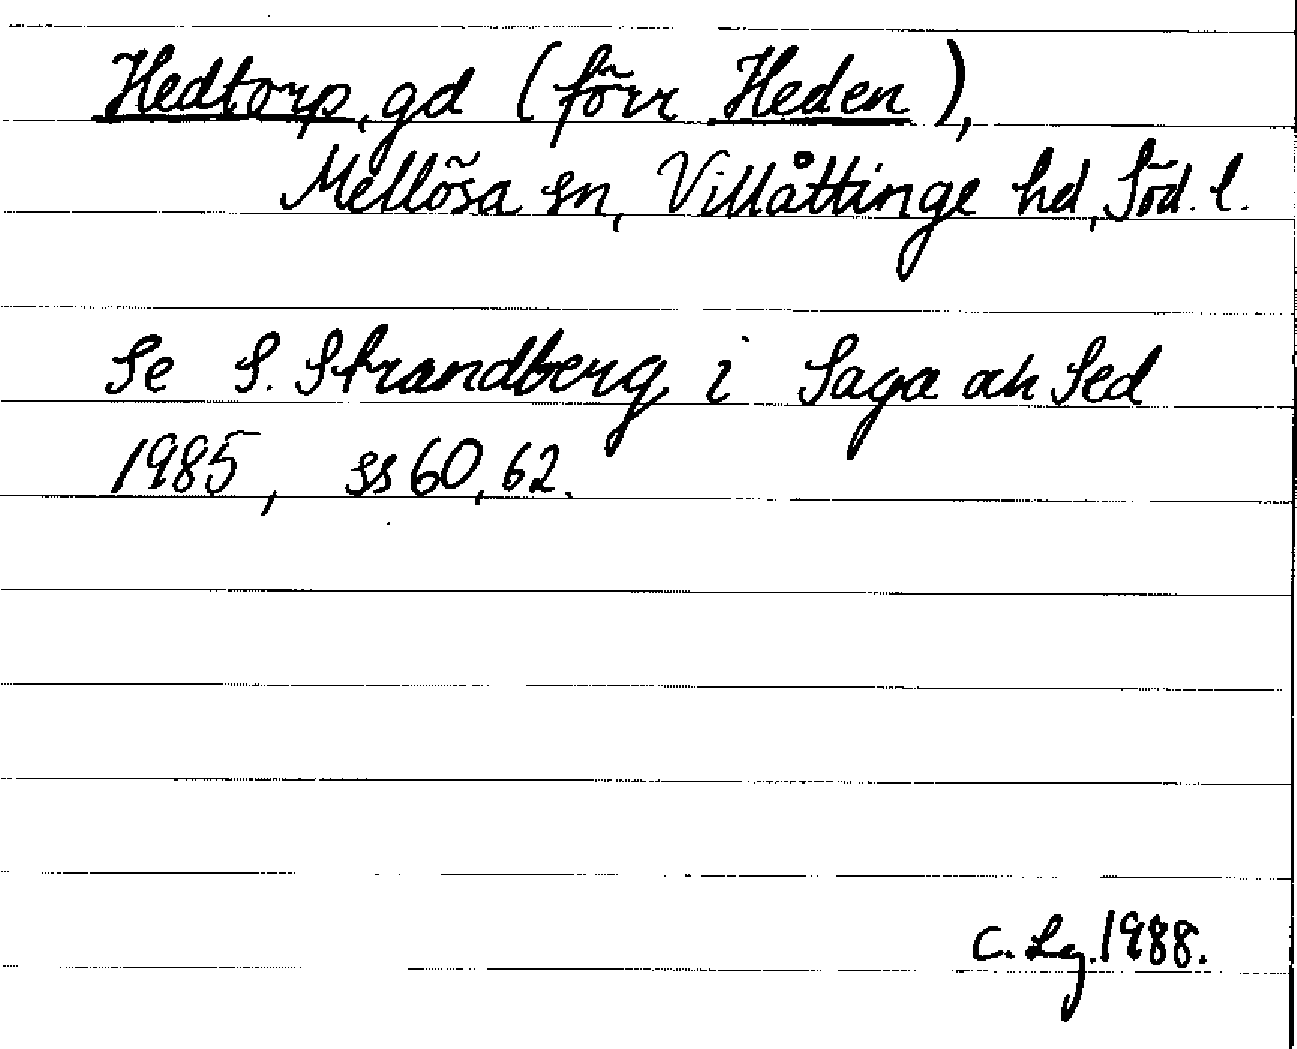 Hedtorp, gd (förr Heden),
Mellösa sn, Villåttinge hd, Söd. l.
Se S. Strandberg i Saga och Sed
1985, ss 60, 62.
C. Lg. 1988.